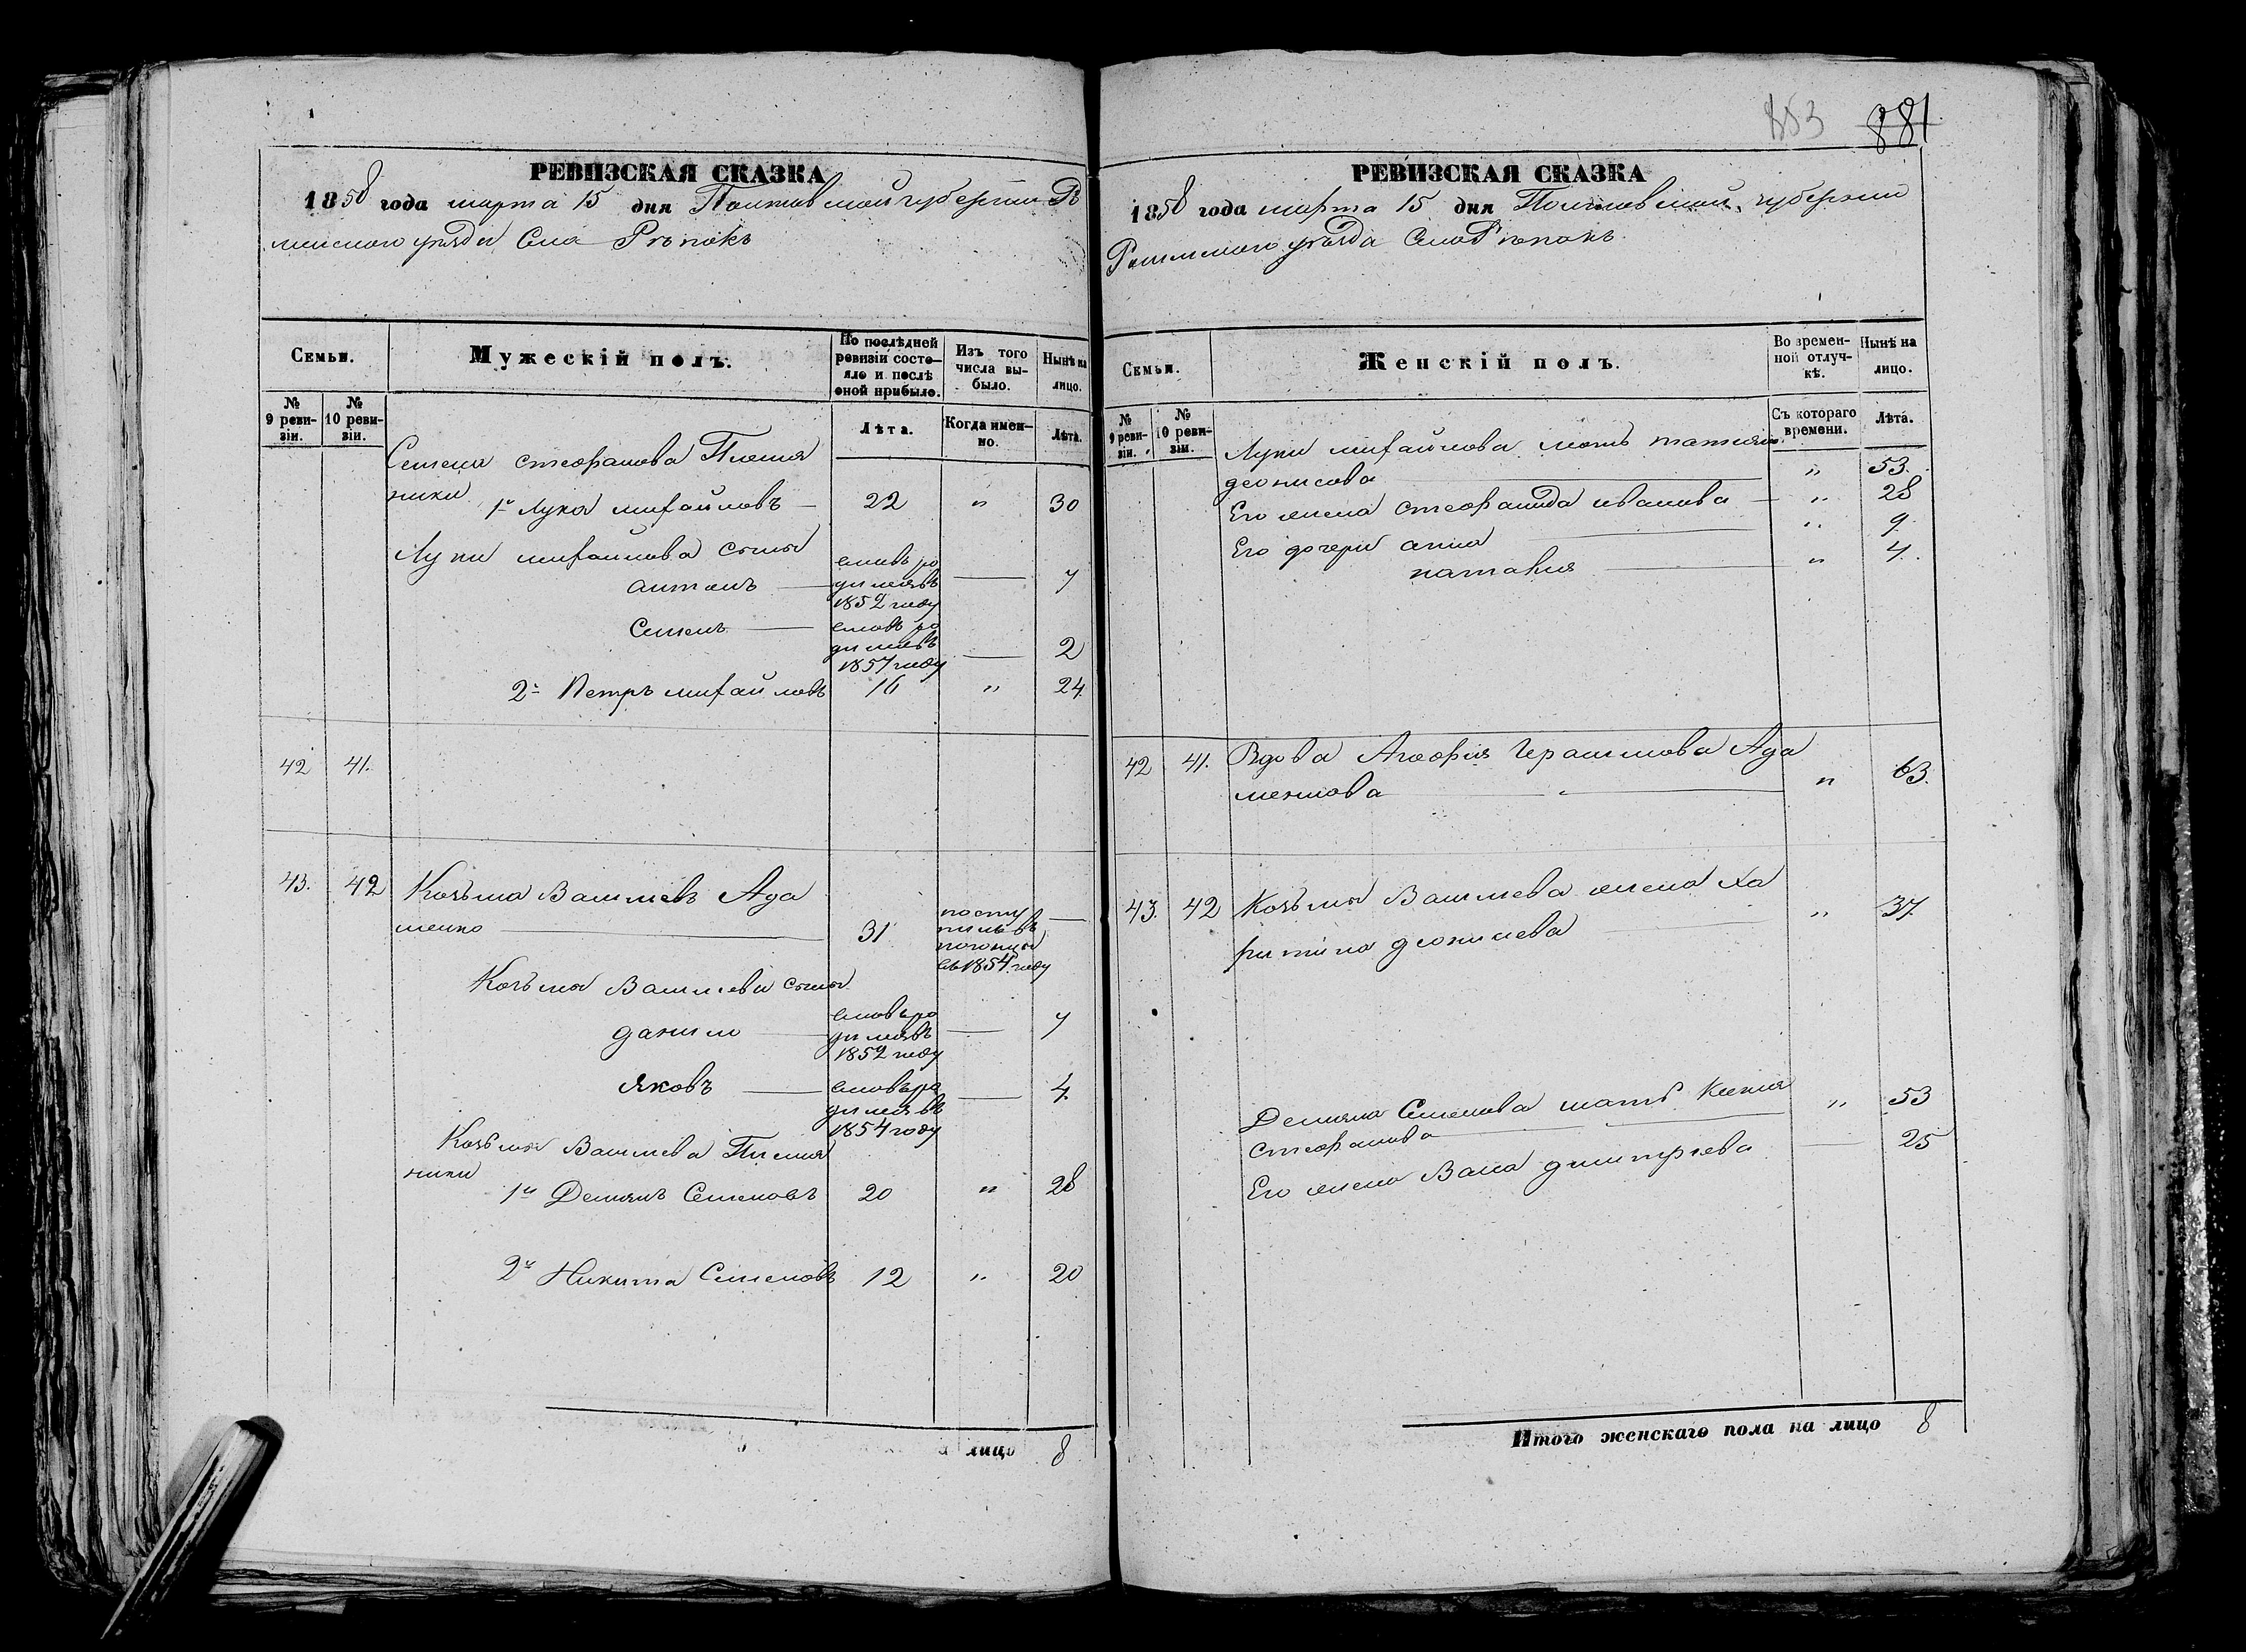 РЕВИЗСКАЯ СКАЗКА
1858 года марта 15 дня Полтавской губернии Ро
менского уезда Села Рѣпокъ
Семьи.
Мужескій полъ.
По послѣдней ревизіи состо- яло и послѣ оной прибыло.
Изъ того числа вы- было.
Нынѣ на лицо.
№ 9 реви- зіи.
№ 10 реви- зіи.
Лѣта.
Когда имен- но.
Лѣта.
Семена стефанова Племя
ники
1й Лука михайловъ 22 " 30
Луки михайлова сыны
антонъ
вновь ро
дился въ
1852 году
7
Семенъ
вновь ро
дился въ
1857 году
2
2й Петръ михайловъ 16 " 24
42 41.
43. 42 Козьма Васильевъ Ада
менко 31
посту
пилъ въ
погонцы
въ 1854 году
Козьмы Васильева сыны
данило
вновь ро
дился въ
1852 году
7
яковъ
вновь ро
дился въ
1854 году
4
Козьмы Васильева Племя
ники
1й Демянъ Семеновъ 20 " 28
2й Никита Семеновъ 12 " 20
лицо 8
853 881
РЕВИЗСКАЯ СКАЗКА
1858 года марта 15 дня Полтавской губернии
Роменского уезда Села Рѣпокъ
Семьи.
Женскій полъ.
Во времен- ной отлуч- кѣ.
Нынѣ на лицо.
№ 9 реви- зіи.
№ 10 реви- зіи.
Съ котораго времени.
Лѣта.
Луки михайлова мать татияна
деонисова " 53.
Его жена стефанида иванова " 28
Его дочери анна " 9.
наталия " 4.
42 41. Вдова Агафия Герасимова Ада
менкова " 63.
43. 42 Козьмы Васильева жена Ха
ритина деонисева " 37.
Демяна Семенова мать Ксения
стефанова " 53
Его жена Васа дмитриева 25
Итого женскаго пола на лицо 8